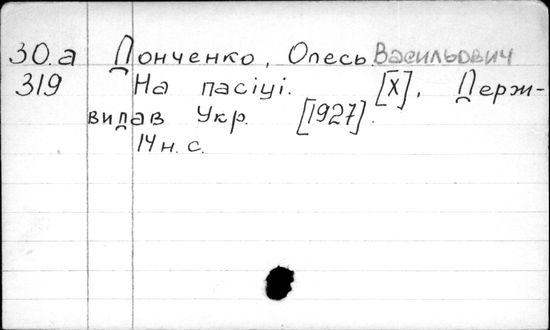 30.а Донченко, Олесь Васильович
319 На пасіці. [Х], Держ-
видав Укр. [1927].
14 н. с.